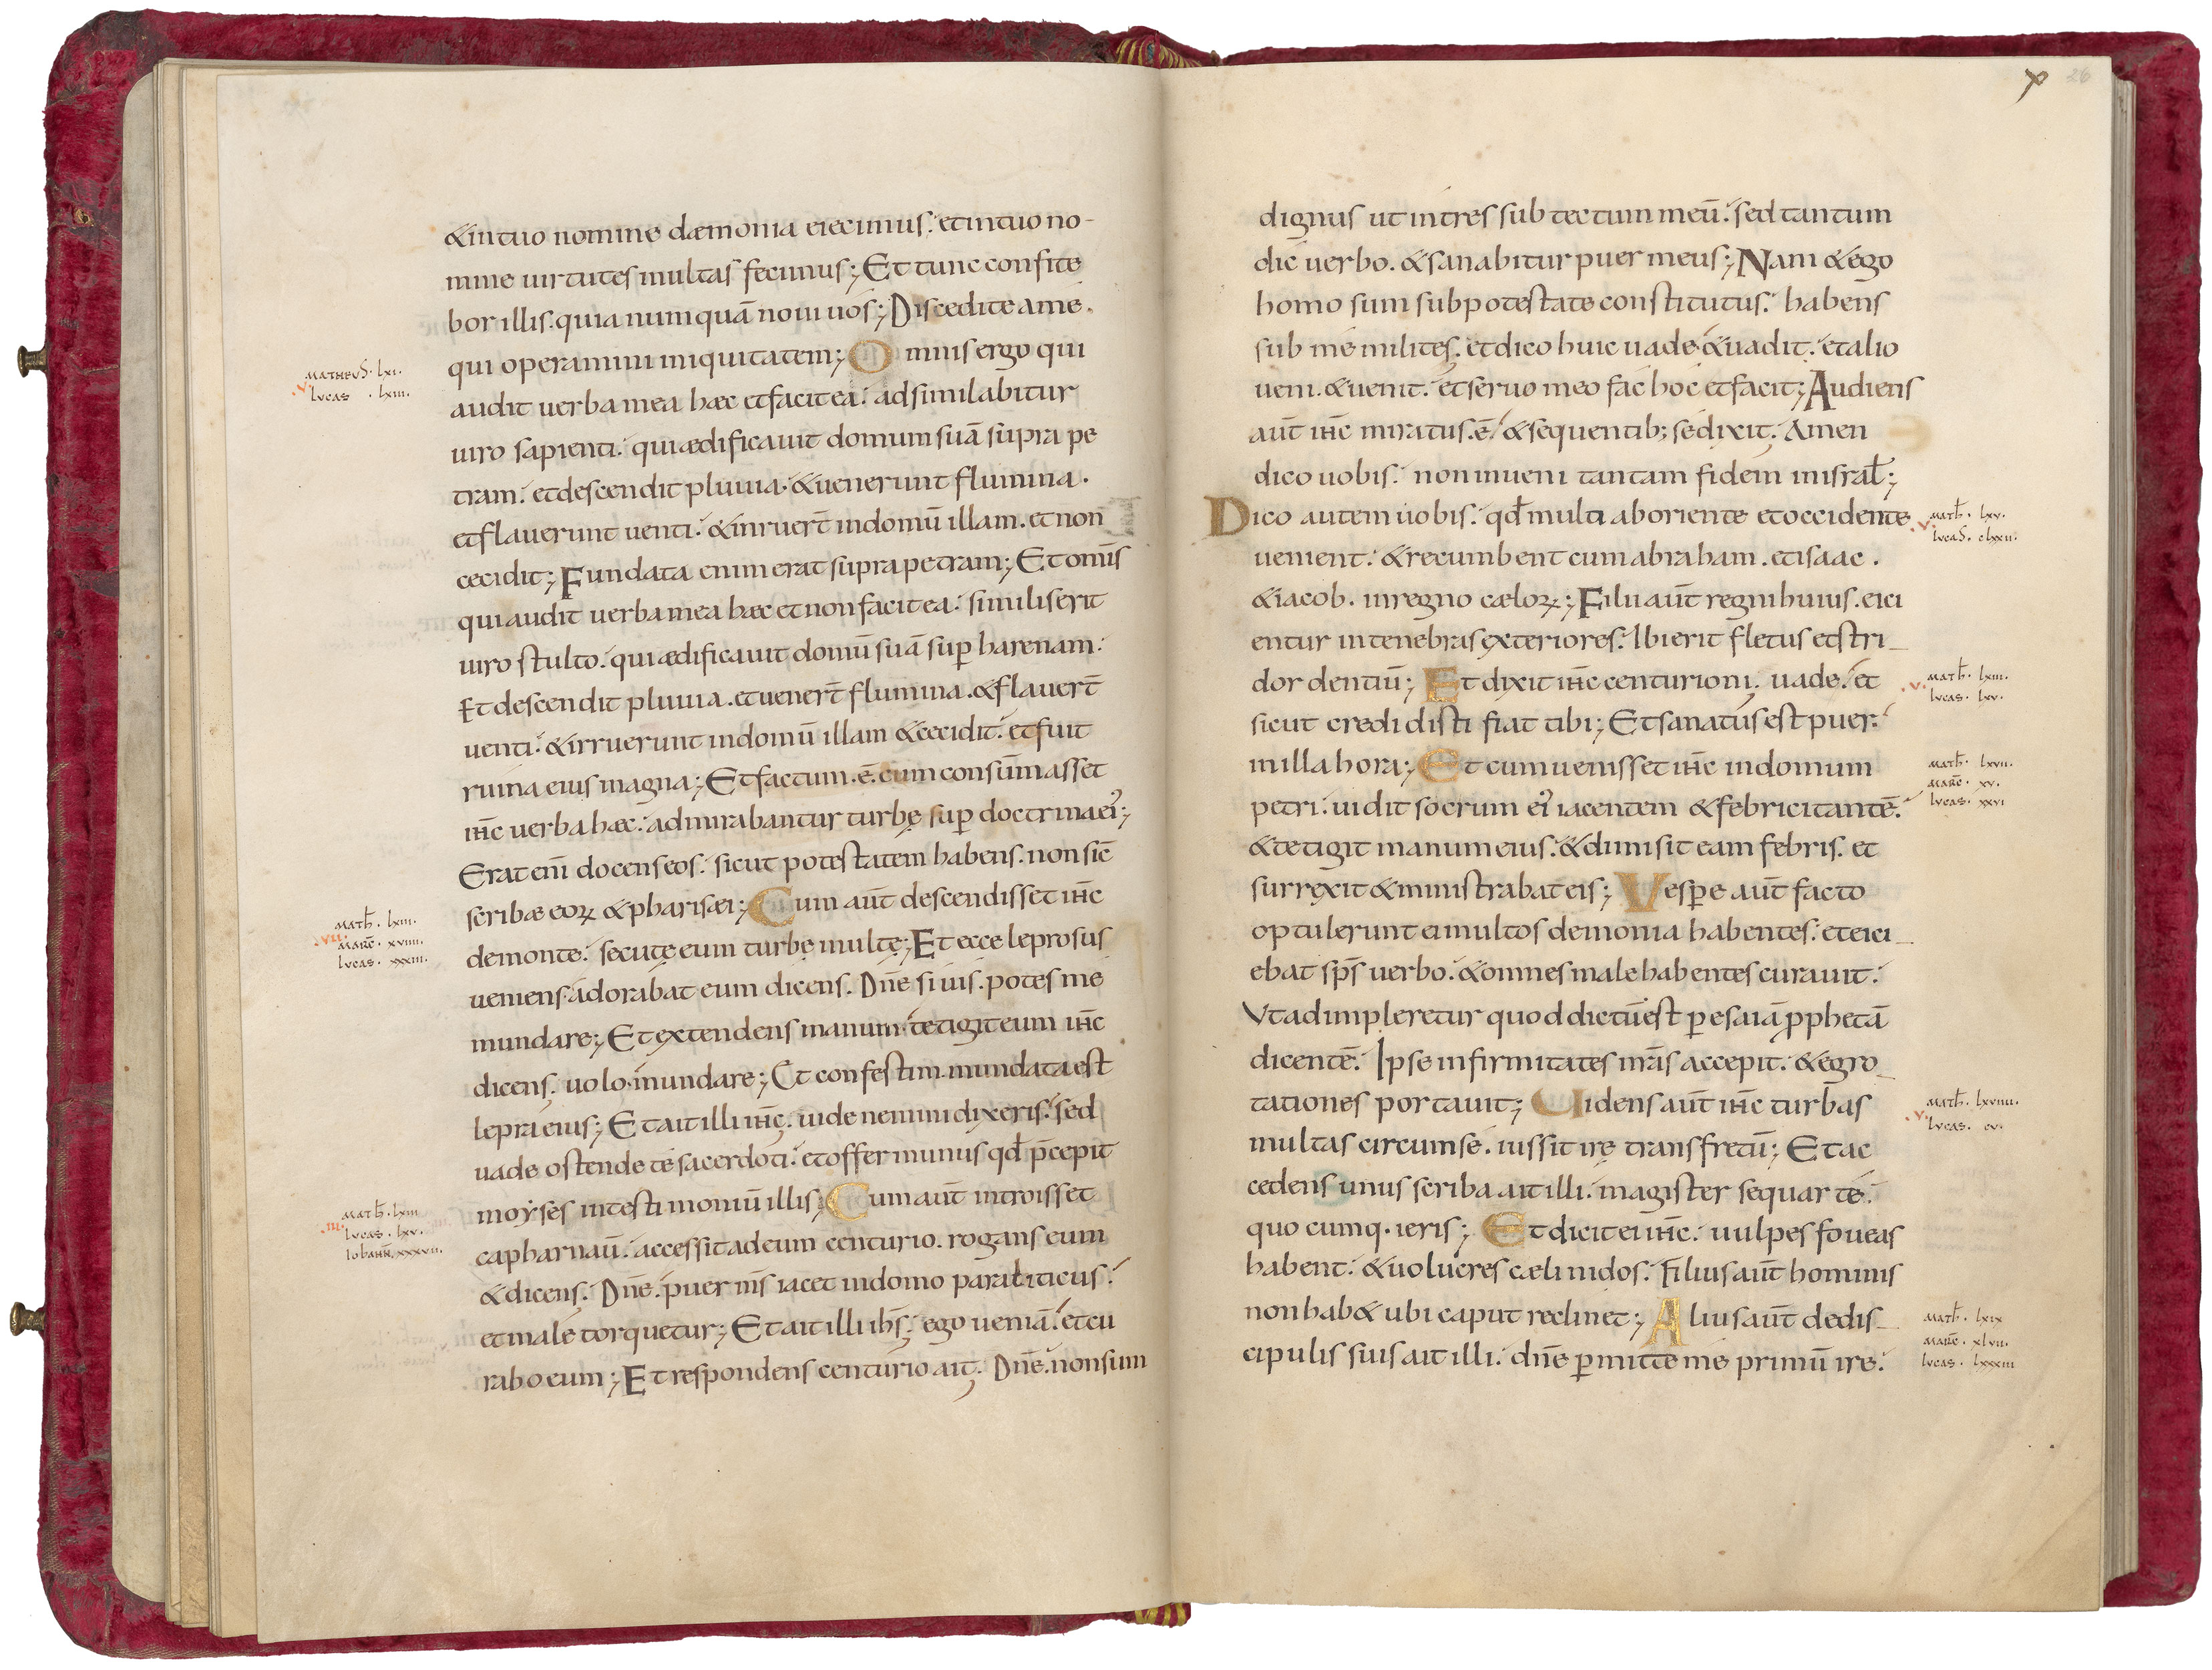 &intuo nomine dæmonia eiecimus. etintuo no-
mine uirtutes multas fecimus; Et tunc confite
bor illis. quia numquā noui uos; Discedite ame.
qui operamini iniquitatem; Omnis ergo qui
MATHEUS. lxi.
v. lucas . lxiii.
audit uerba mea hæc etfacit ea. adsimilabitur
uiro sapienti. qui ædificauit domum suā supra pe
tram. etdescendit pluuia. &uenerunt flumina.
etflauerunt uenti. &inruert̄ indomū illam. et non
cecidit; Fundata enim erat supra petram; Et omīs
qui audit uerba mea hæc et non facit ea. similis erit
uiro stulto. qui ædificauit domū suā sup̄ harenam.
Et descendit pluuia. etuenert̄ flumina. &flauert̄
uenti. &irruerunt indomū illam &cecidit. etfuit
ruina eius magna; Et factum .ē. cum consūmasset
ih̄c uerba hæc. admirabantur turbę sup̄ doctrina ei';
Erat eni̅ docens eos. sicut potestatem habens. non sic̄
scribæ eoꝝ &pharisæi; Cum aut̄ descendisset ih̄c
math̄. lxiii.
vii. marc̄. xviiii.
lucas. xxxiii.
demonte. secutę eum turbę multę; Et ecce leprosus
ueniens. adorabat eum dicens. Dn̄e si uis. potes me
mundare; Et extendens manum. tetigit eum ih̄c
dicens. uolo. mundare; Et confestim mundata est
lepra eius; Et ait illi ih̄c. uide nemini dixeris. sed
uade ostende te sacerdoti. et offer munus qd̄ p̄cepit
moyses intestimoniū illis; Cum aut̄ introisset
math̄. lxiiii
iii. lucas. lxv.
iohann̄. xxxvii.
capharnaū. accessit ad eum centurio. rogans eum
&dicens. Dn̄e. puer m̄s iacet indomo paraliticus.
et male torquetur; Et ait illi ih̄s. ego ueniā. et cu
rabo eum; Et respondens centurio ait. Dn̄e. non sum
26
dignus ut intres sub tectum meū. sed tantum
dic uerbo. &sanabitur puer meus; Nam &ego
homo sum subpotestate constitutus. habens
sub me milites. et dico huic uade &uadit. et alio
ueni. &uenit. et seruo meo fac hoc et facit; Audiens
aut̄ ih̄c miratus .ē. &sequentib; se dixit. Amen
dico uobis. non inueni tantam fidem inisrał;
Dico autem uobis. qd̄ multi aboriente et occidente
v. math̄. lxv.
lucas. clxxii.
uenient. &recumbent cum abraham. et isaac.
&iacob. inregno cæloꝝ; Filii aut̄ regni huius. eici
entur intenebras exteriores. Ibi erit fletus et stri-
dor dentiū; Et dixit ih̄c centurioni. uade. et
v. math̄. lxiii.
lucas. lxv.
sicut credidisti fiat tibi; Et sanatus est puer.
in illa hora; Et cum uenisset ih̄c in domum
math̄. lxvii.
marc̄. xv.
lucas. xxvi
petri. uidit socrum ei' iacentem &febricitantē.
&tetigit manum eius. &dimisit eam febris. et
surrexit &ministrabat eis; Vespere aut̄ facto
optulerunt ei multos demonia habentes. et eici-
ebat sps̄ uerbo. &omnes male habentes curauit.
Vt adimpleretur quod dictūest p̄ esaiā p̄phetā
dicentē. Ipse infirmitates nrās accepit. &egro-
tationes portauit; Uidens aut̄ ih̄c turbas
math̄. lxviiii.
v. lucas. cv.
multas circum se. iussit ire transfretū; Et ac
cedens unus scriba ait illi. magister sequar te.
quo cumq. ieris; Et dicit ei ih̄c. uulpes foueas
habent. &uolucres cæli nidos. Filius aut̄ hominis
non hab& ubi caput reclinet; Alius aut̄ dedis-
math̄. lxix
marc̄. xlvii.
lucas. lxxxiii
cipulis suis ait illi. dn̄e p̄mitte me primū ire.